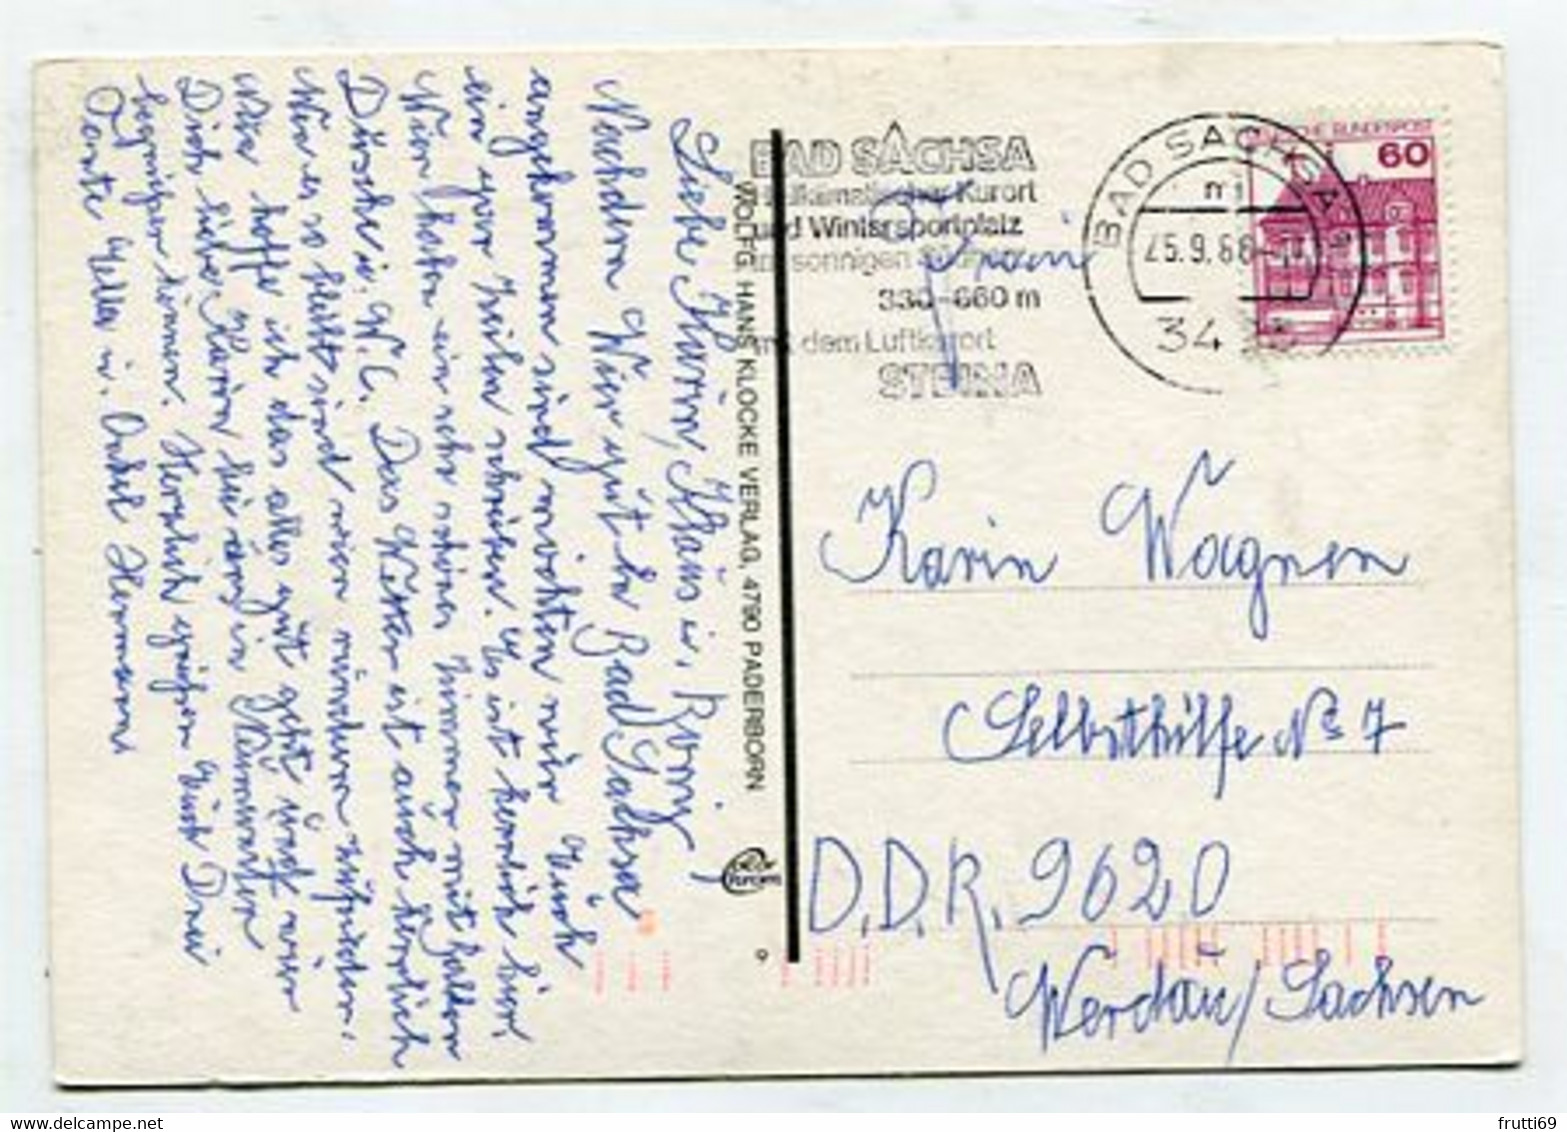 Liebe Karin, Klaus u. Romy,
Nachdem Wir gut in Bad Sachsa
angekommen sind möchten wir Euch
ein paar Zeilen schreiben. Es ist herrlich hier
Wir haben ein sehr schönes Zimmer mit Balkon
Dusche u. W.C. Das Wetter ist auch herrlich
Wenn es so bleibt sind wir rundum zufrieden.
Wie hoffe ich das alles gut geht und wir
Dich liebe Karin hier in
begrüßen können. Herzlich grüßen Euch Drei
Tante Hella u. Onkel Hermann
WOLFG. HANS KLOCKE VERLAG, 4790 PADERBORN
9
BAD SACHSA
heilklimatischer Kurort
und Wintersportplatz
am sonnigen Südharz
330-660 m
mit dem Luftkurort
STEINA
BAD SACHSA
25.9.86
34
DEUTSCHE BUNDESPOST
60
Frau
Karin Wagner
Selbsthilfe Nr 7
D.D.R. 9620
Werdau/Sachsen
frutti69